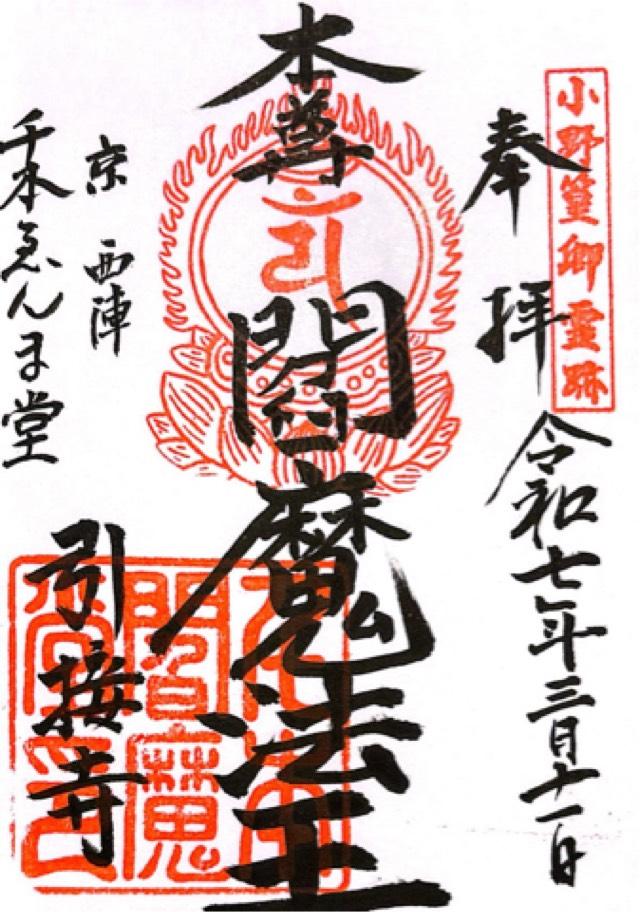 小野篁卿霊跡
奉拝
令和七年三月十一日
本尊
閻魔法王
京 西陣
千本ゑんま堂
引接寺